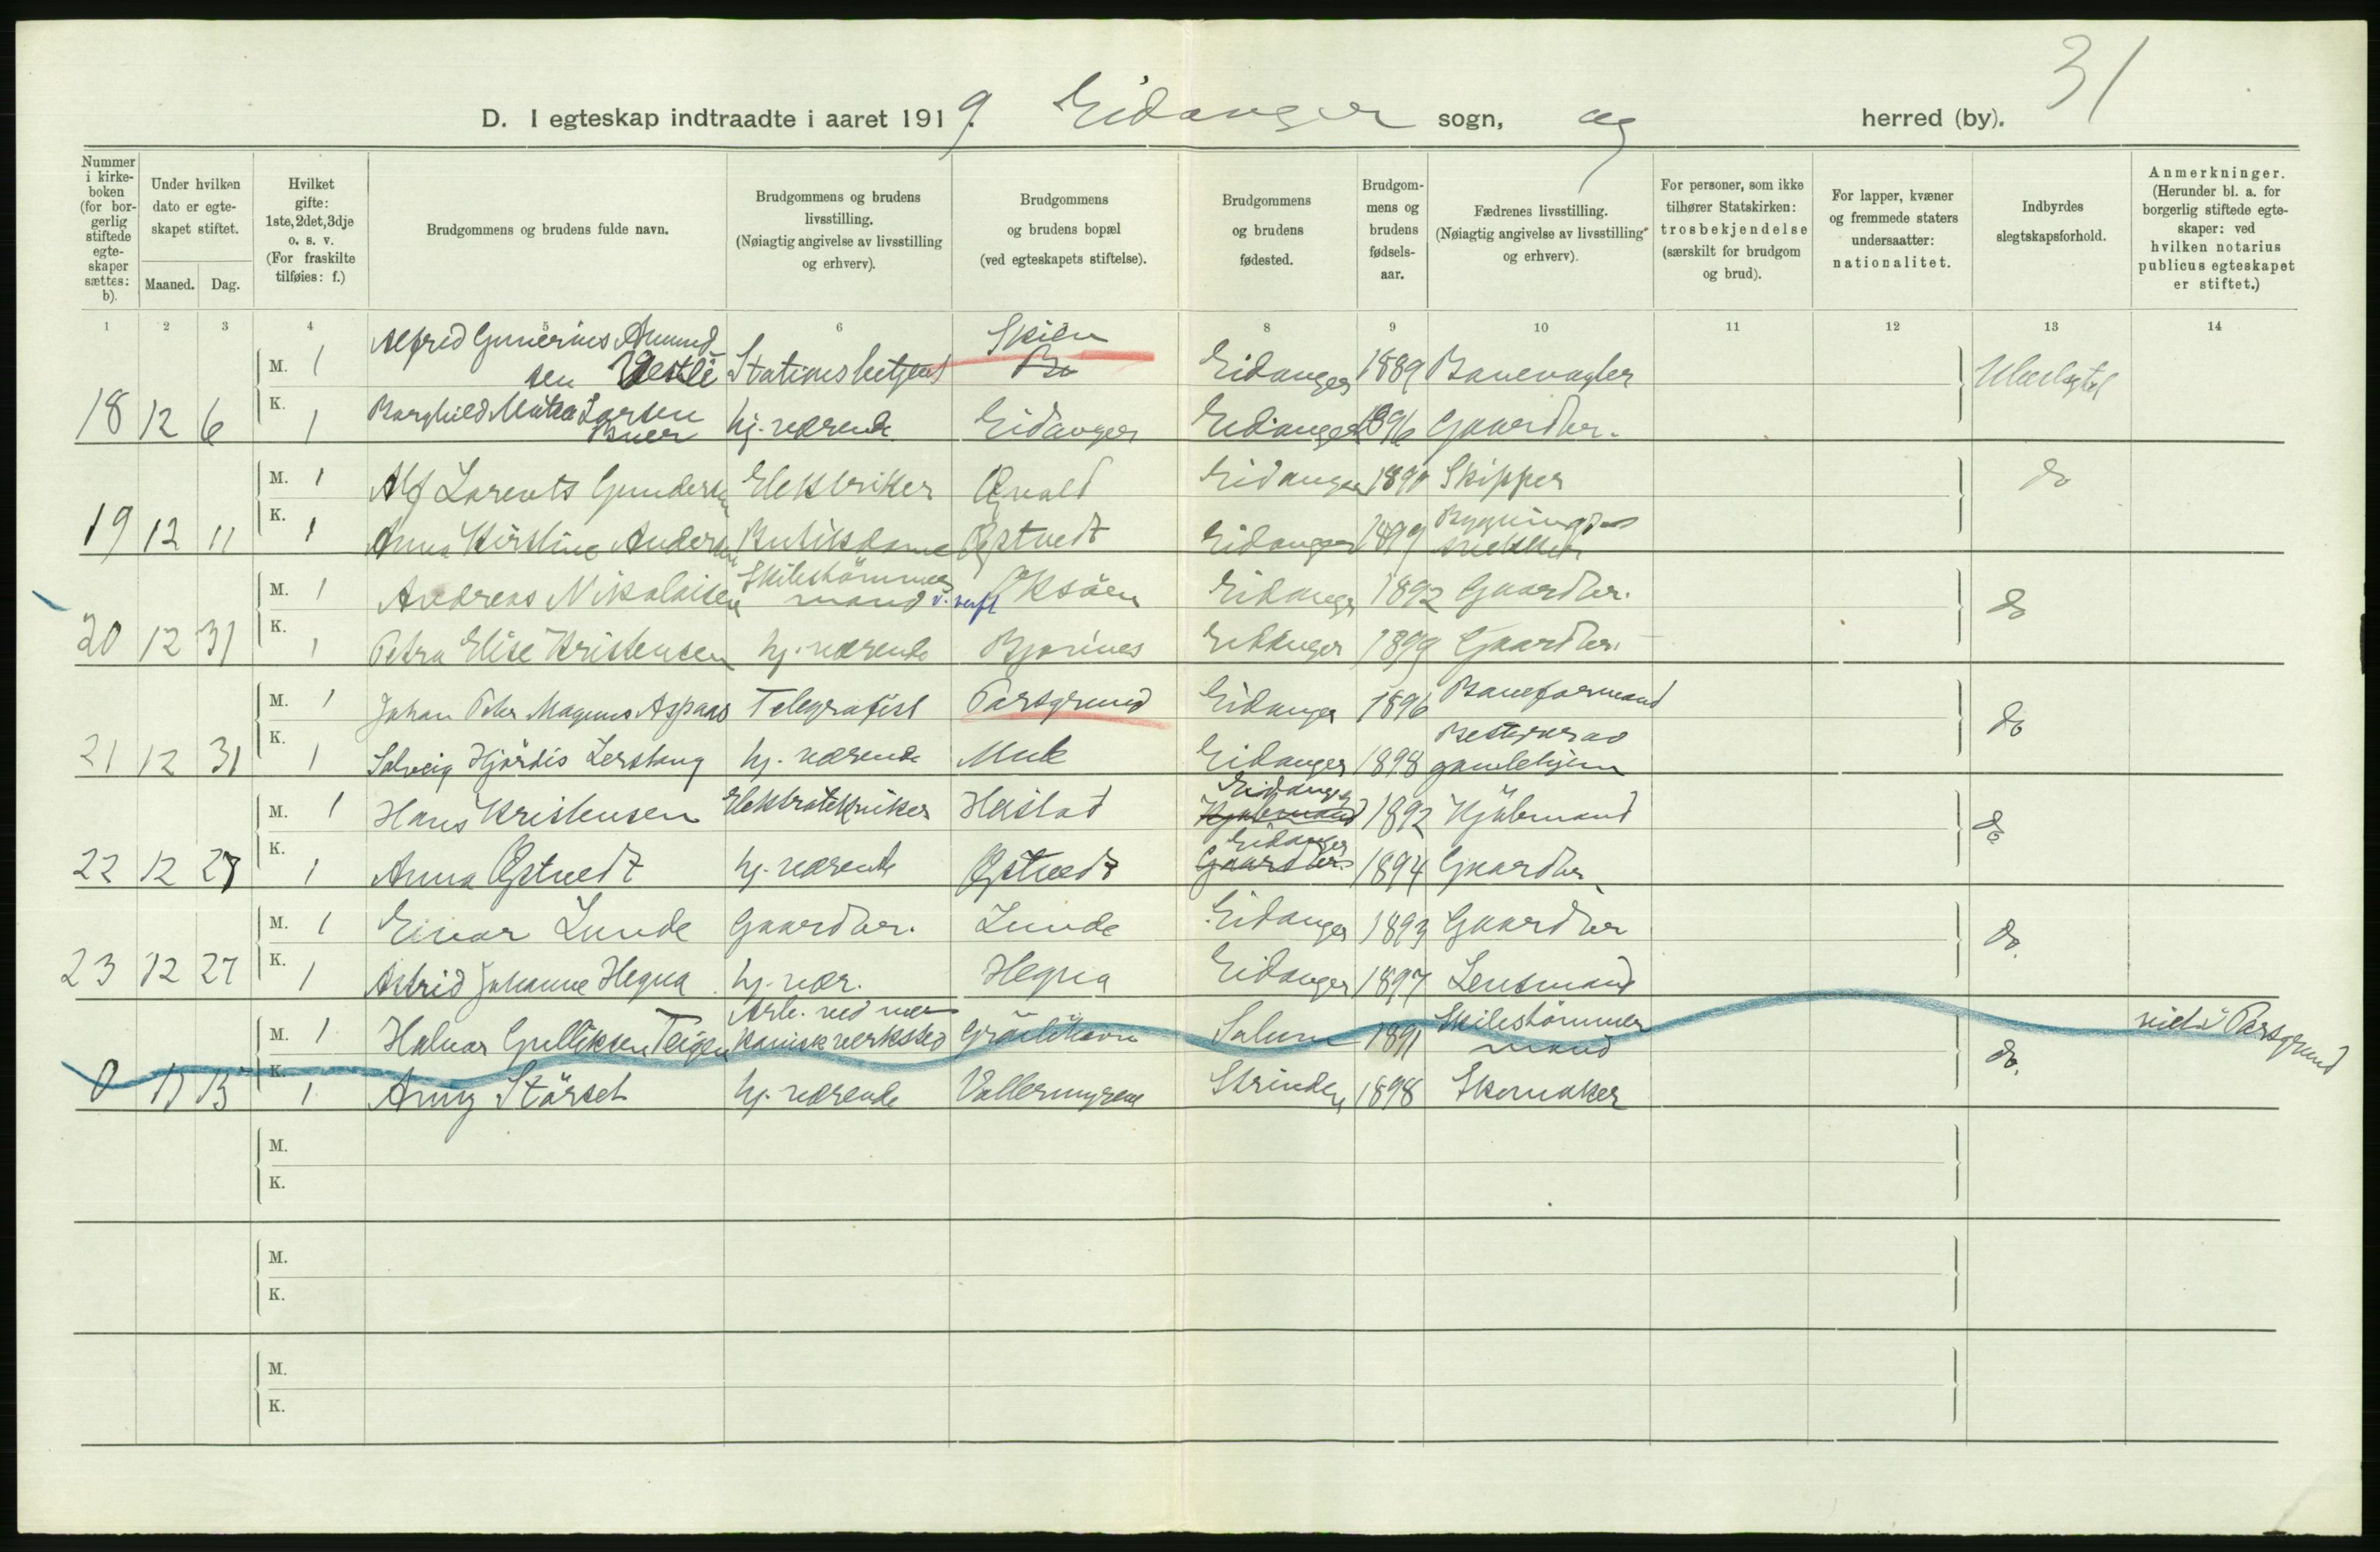 31
D. I egteskap indtraadte i aaret 1919. Eidanger sogn, og herred (by).
Nummer i kirkeboken (for borgerlig stiftede egteskaper sættes: b).
Under hvilken dato er egteskapet stiftet.
Maaned. Dag.
Hvilket gifte: 1ste, 2det, 3dje o. s. v. (For fraskilte tilføies: f.)
Brudgommens og brudens fulde navn.
Brudgommens og brudens livsstilling. (Nøiagtig angivelse av livsstilling og erhverv).
Brudgommens og brudens bopæl (ved egteskapets stiftelse).
Brudgommens og brudens fødested.
Brudgommens og brudens fødselsaar.
Fædrenes livsstilling. (Nøiagtig angivelse av livsstilling og erhverv).
For personer, som ikke tilhører Statskirken: trosbekjendelse (særskilt for brudgom og brud).
For lapper, kvæner og fremmede staters undersaatter: nationalitet.
Indbyrdes slegtskapsforhold.
Anmerkninger. (Herunder bl. a. for borgerlig stiftede egteskaper: ved hvilken notarius publicus egteskapet er stiftet.)
1 2 3 4 5 6 8 9 10 11 12 13 14
Alfred Gunerius Amund Skien
M. 1 sen Vestli Stationsbetjent Bø Eidanger 1889 Banevagter Ubeslegtet
18 12 6 K. 1 Borghild Larsen Buer hj. værende Eidanger Eidanger 1896 Gaardbr.
M. 1 Alf Lorents Gundersen Elektriker Eidanger 1890 Skipper do
19 12 11 K. 1 Anna Kirstine Andersen Butiksdame Øgstvedt Eidanger 1899 Bygnings snekker
M. 1 Andreas Nikolaisen Skibstømmermand v. verft Oksøen Eidanger 1892 Gaardbr. do
20 12 31 K. 1 Petra Elise Kristensen hj. værende Bjørnes Eidanger 1899 Gaardbr.
M. 1 Johan Peter Magnus Aspaas Telegrafist Porsgrund Eidanger 1896 Baneformand do
21 12 31 K. 1 Solveig Hjørdis Lerstang hj. værende Mule Eidanger 1898 Bestyrer av gamlehjem
M. 1 Hans Kristensen Elektrotekniker Heistad Kjøbmand Eidanger 1892 Kjøbmand do
22 12 27 K. 1 Anna Øgstvedt hj. værende Øgstvedt Gaardbr. Eidanger 1894 Gaardbr.
M. 1 Einar Lunde Gaardbr. Lunde Eidanger 1893 Gaardbr do.
23 12 27 K. 1 Astrid Johanne Hegna hj. vær. Hegna Eidanger 1897 Lensmand
M. 1 Halvor Gulliksen Teigen Arb. ved mekanisk verksted Solum 1891 Skibstømmermand do. viet i Porsgrund
0 K. 1 Anny Størset hj. værende Vallermyrene Strinden 1898 Skomaker
M.
K.
M.
K.
M.
K.